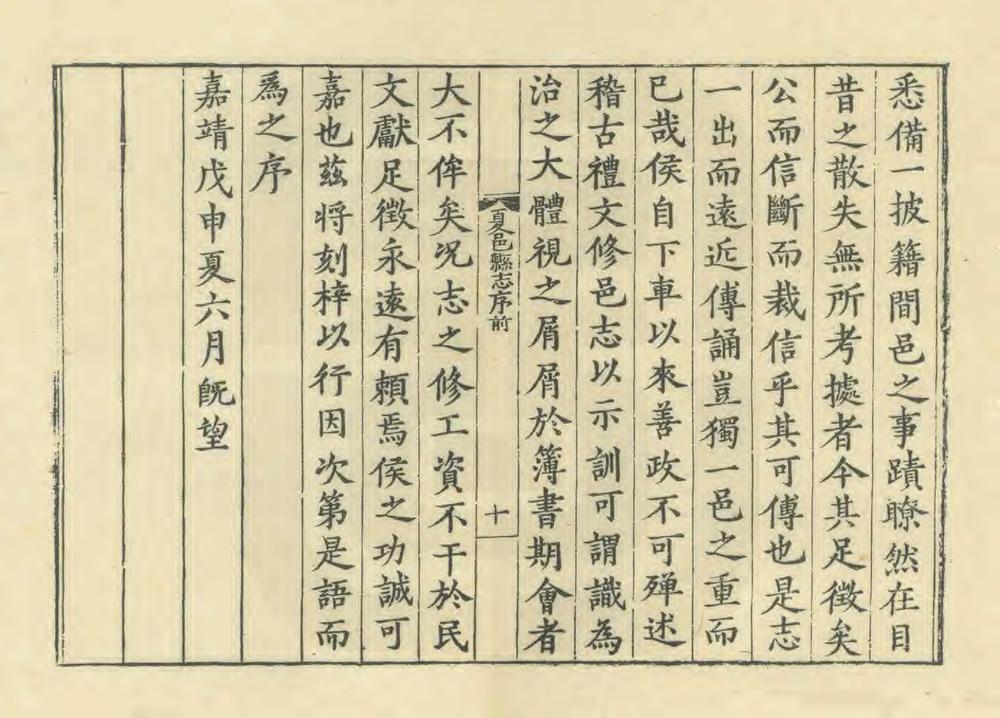 悉備一披籍間邑之事蹟瞭然在目
昔之散失無所考據者今其足徵矣
公而信斷而裁信乎其可傳也是志
一出而遠近傳誦豈獨一邑之重而
已哉侯自下車以來善政不可殫述
稽古禮文修邑志以示訓可謂識為
治之大體視之屑屑於簿書期會者
夏邑縣志序前
十
大不侔矣况志之修工資不干於民
文獻足徵永遠有賴焉侯之功誠可
嘉也茲将刻梓以行因次第是語而
爲之序
嘉靖戊申夏六月旣望